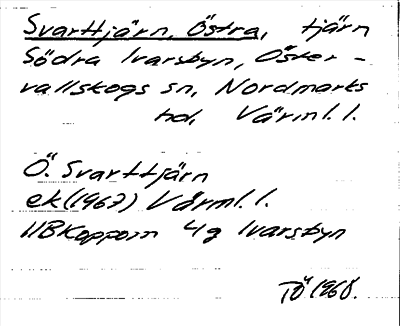 Svarttjärn, Östra, tjärn
Södra Ivarsbyn, Öster-
vallskogs sn, Nordmarks
hd, Värml. l.
Ö. Svarttjärn
ek (1967) Värml. l.
11B Koppom 4g Ivarsbyn
TÖ 1968.